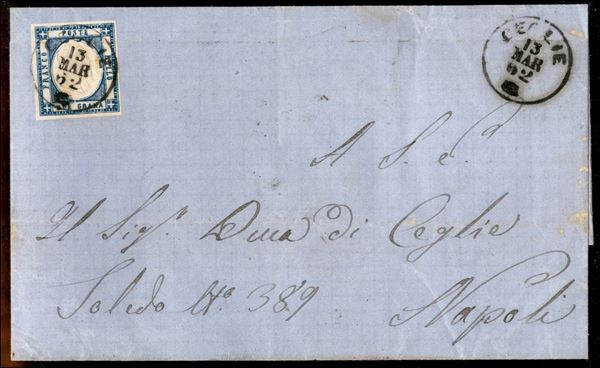 FRANCO
POSTA
GRANA
13
MAR
62
CEGLIE
13
MAR
62
A S. E.
Il Sigr. Duca di Ceglie
Toledo No. 389
Napoli